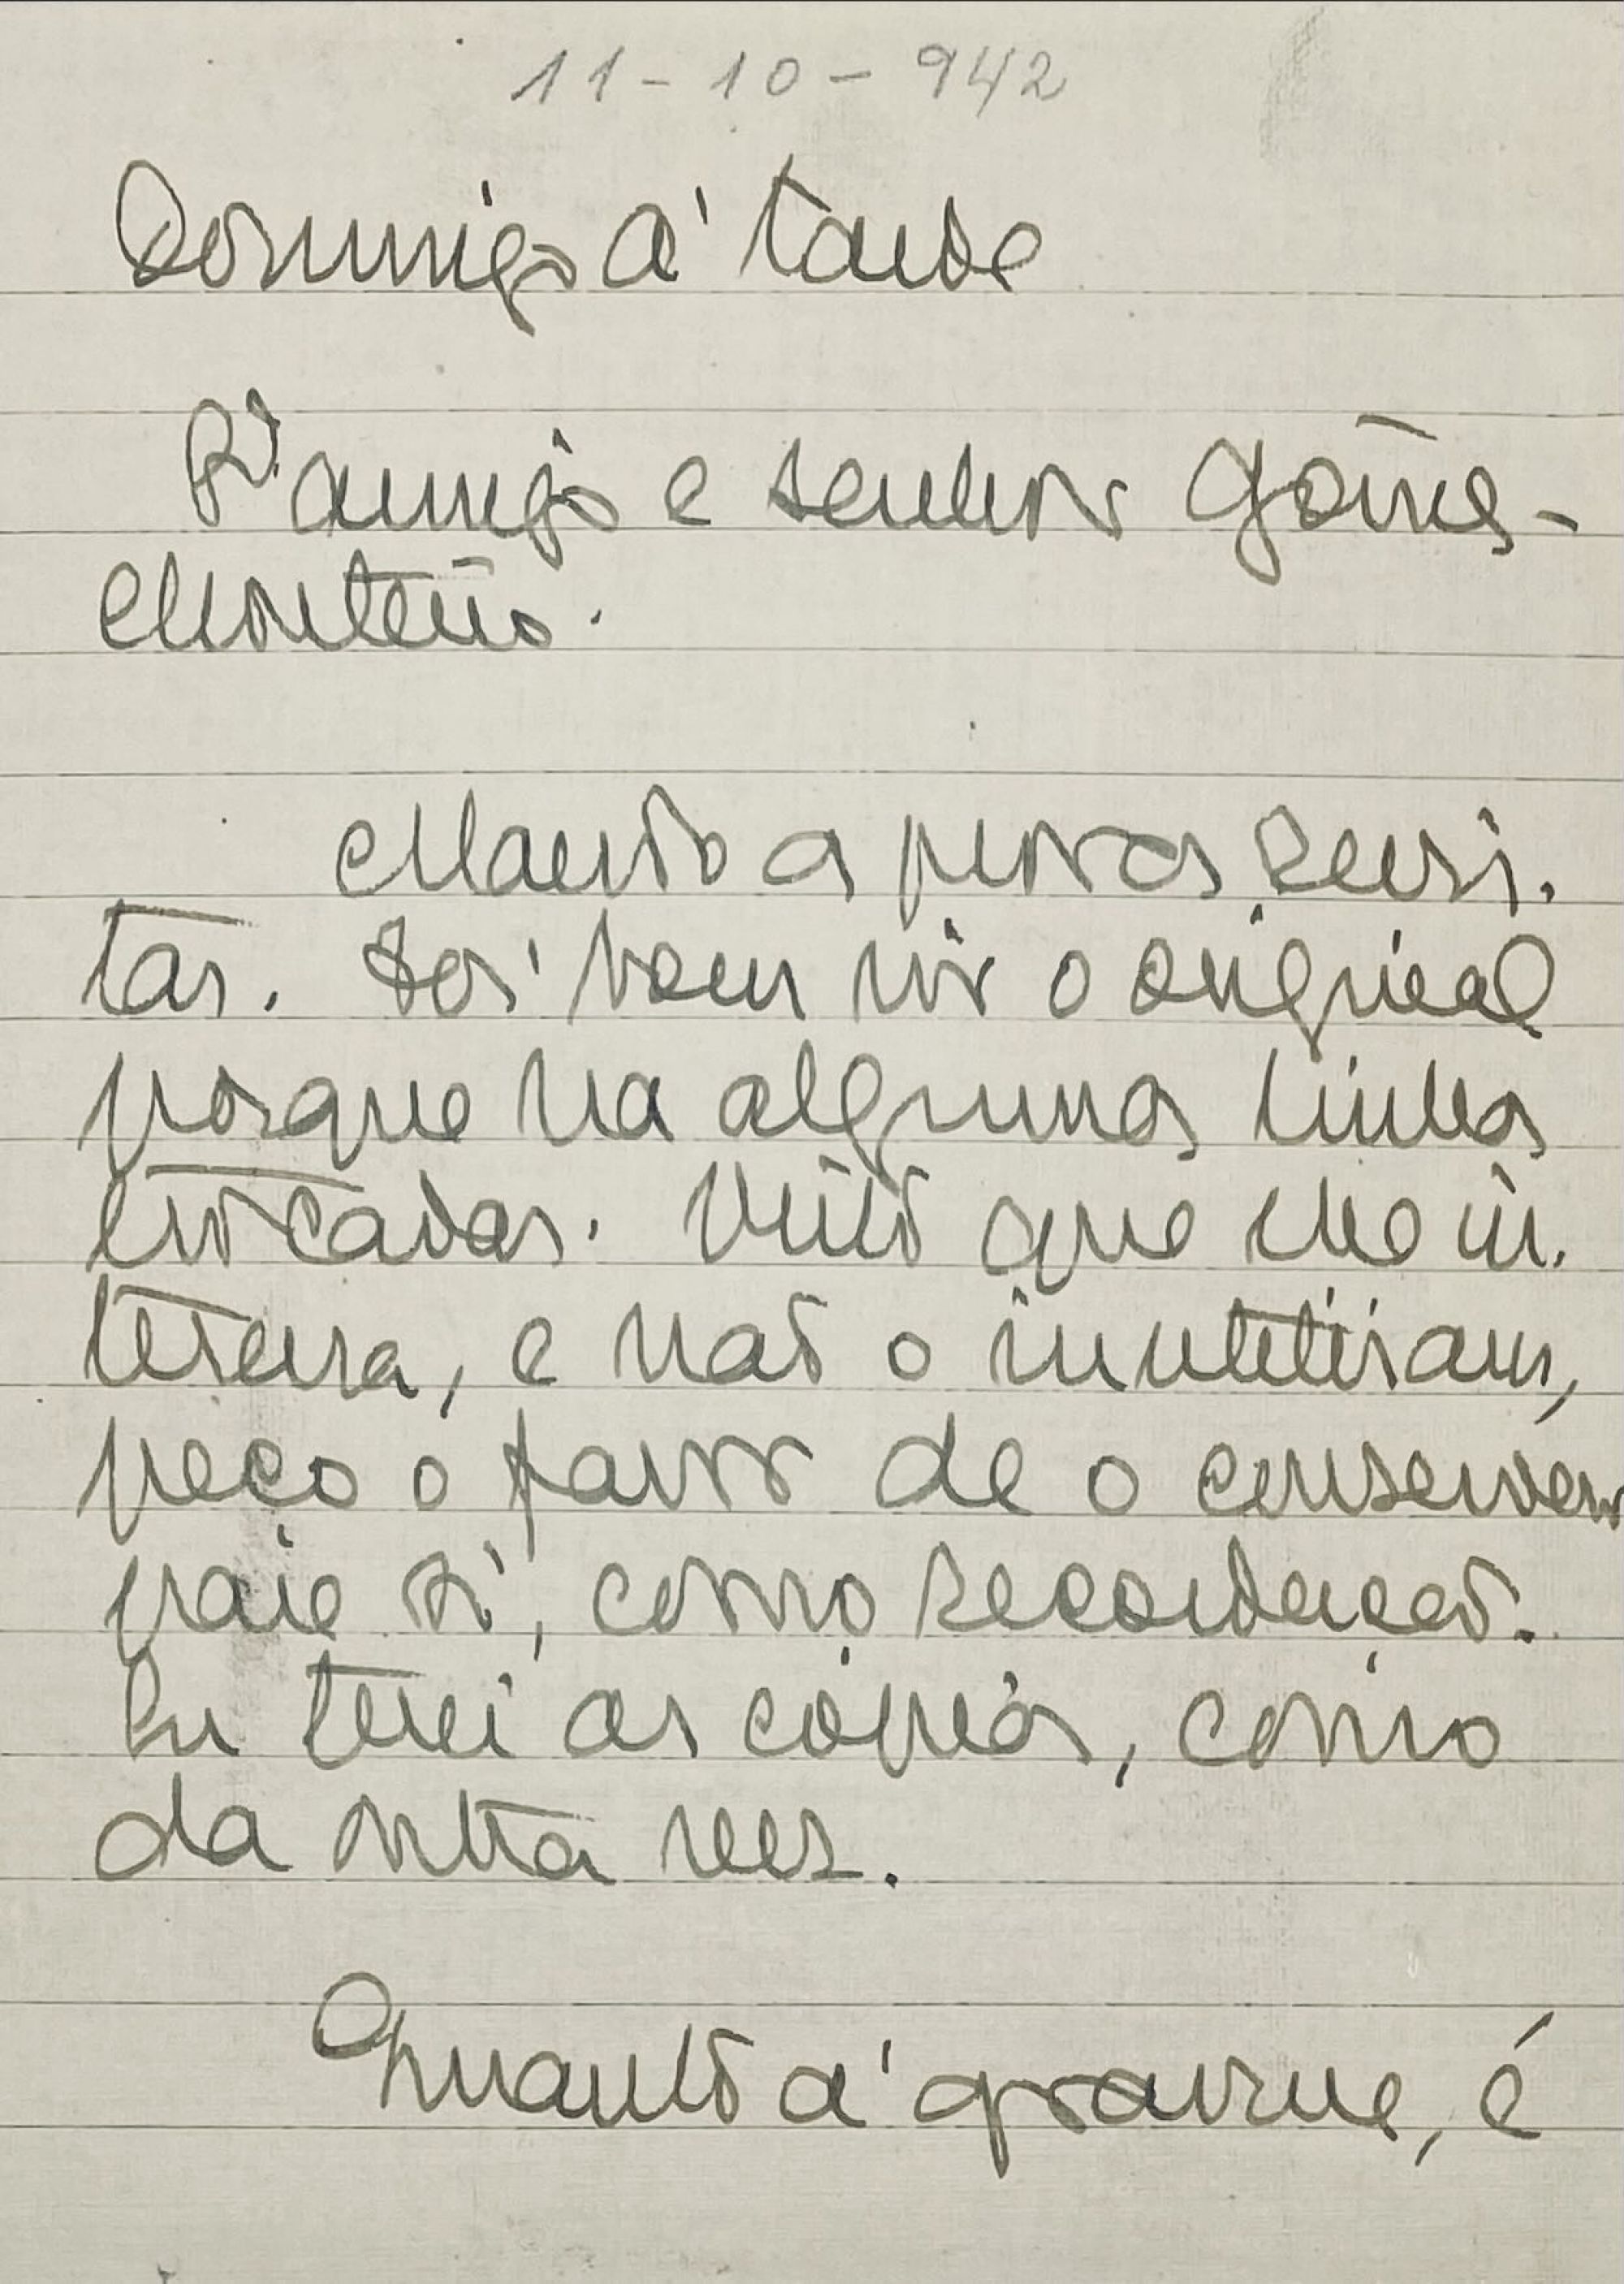 11-10-942
Domingo á tarde
Bom amigo e senhor Gomes-
Monteiro.
Mando as provas revis-
tas. Foi bom vir o original
porque ha algumas linhas
trocadas. Visto que lhe in-
teressa, e não o inutilisam,
peço o favor de o conservar
para si, como recordação.
Eu terei as cópias, como
da outra vez.
Quanto á gravura, é